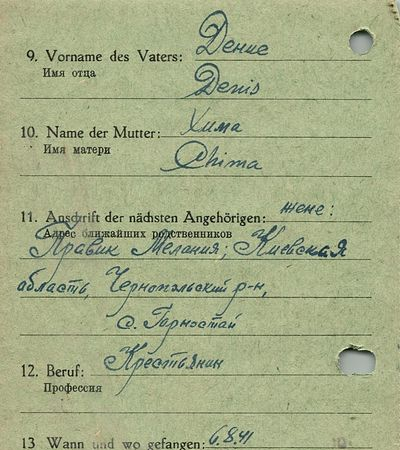 9. Vorname des Vaters: Денис
Имя отца
Denis
10. Name der Mutter: Хима
Имя матери
Chima
11. Anschrift der nächsten Angehörigen: жене:
Адрес ближайших родственников
Правик Мелания, Киевская
область, Чернопольский р-н,
с. Горностай
12. Beruf: Крестьянин
Профессия
13 Wann und wo gefangen: 6.8.41